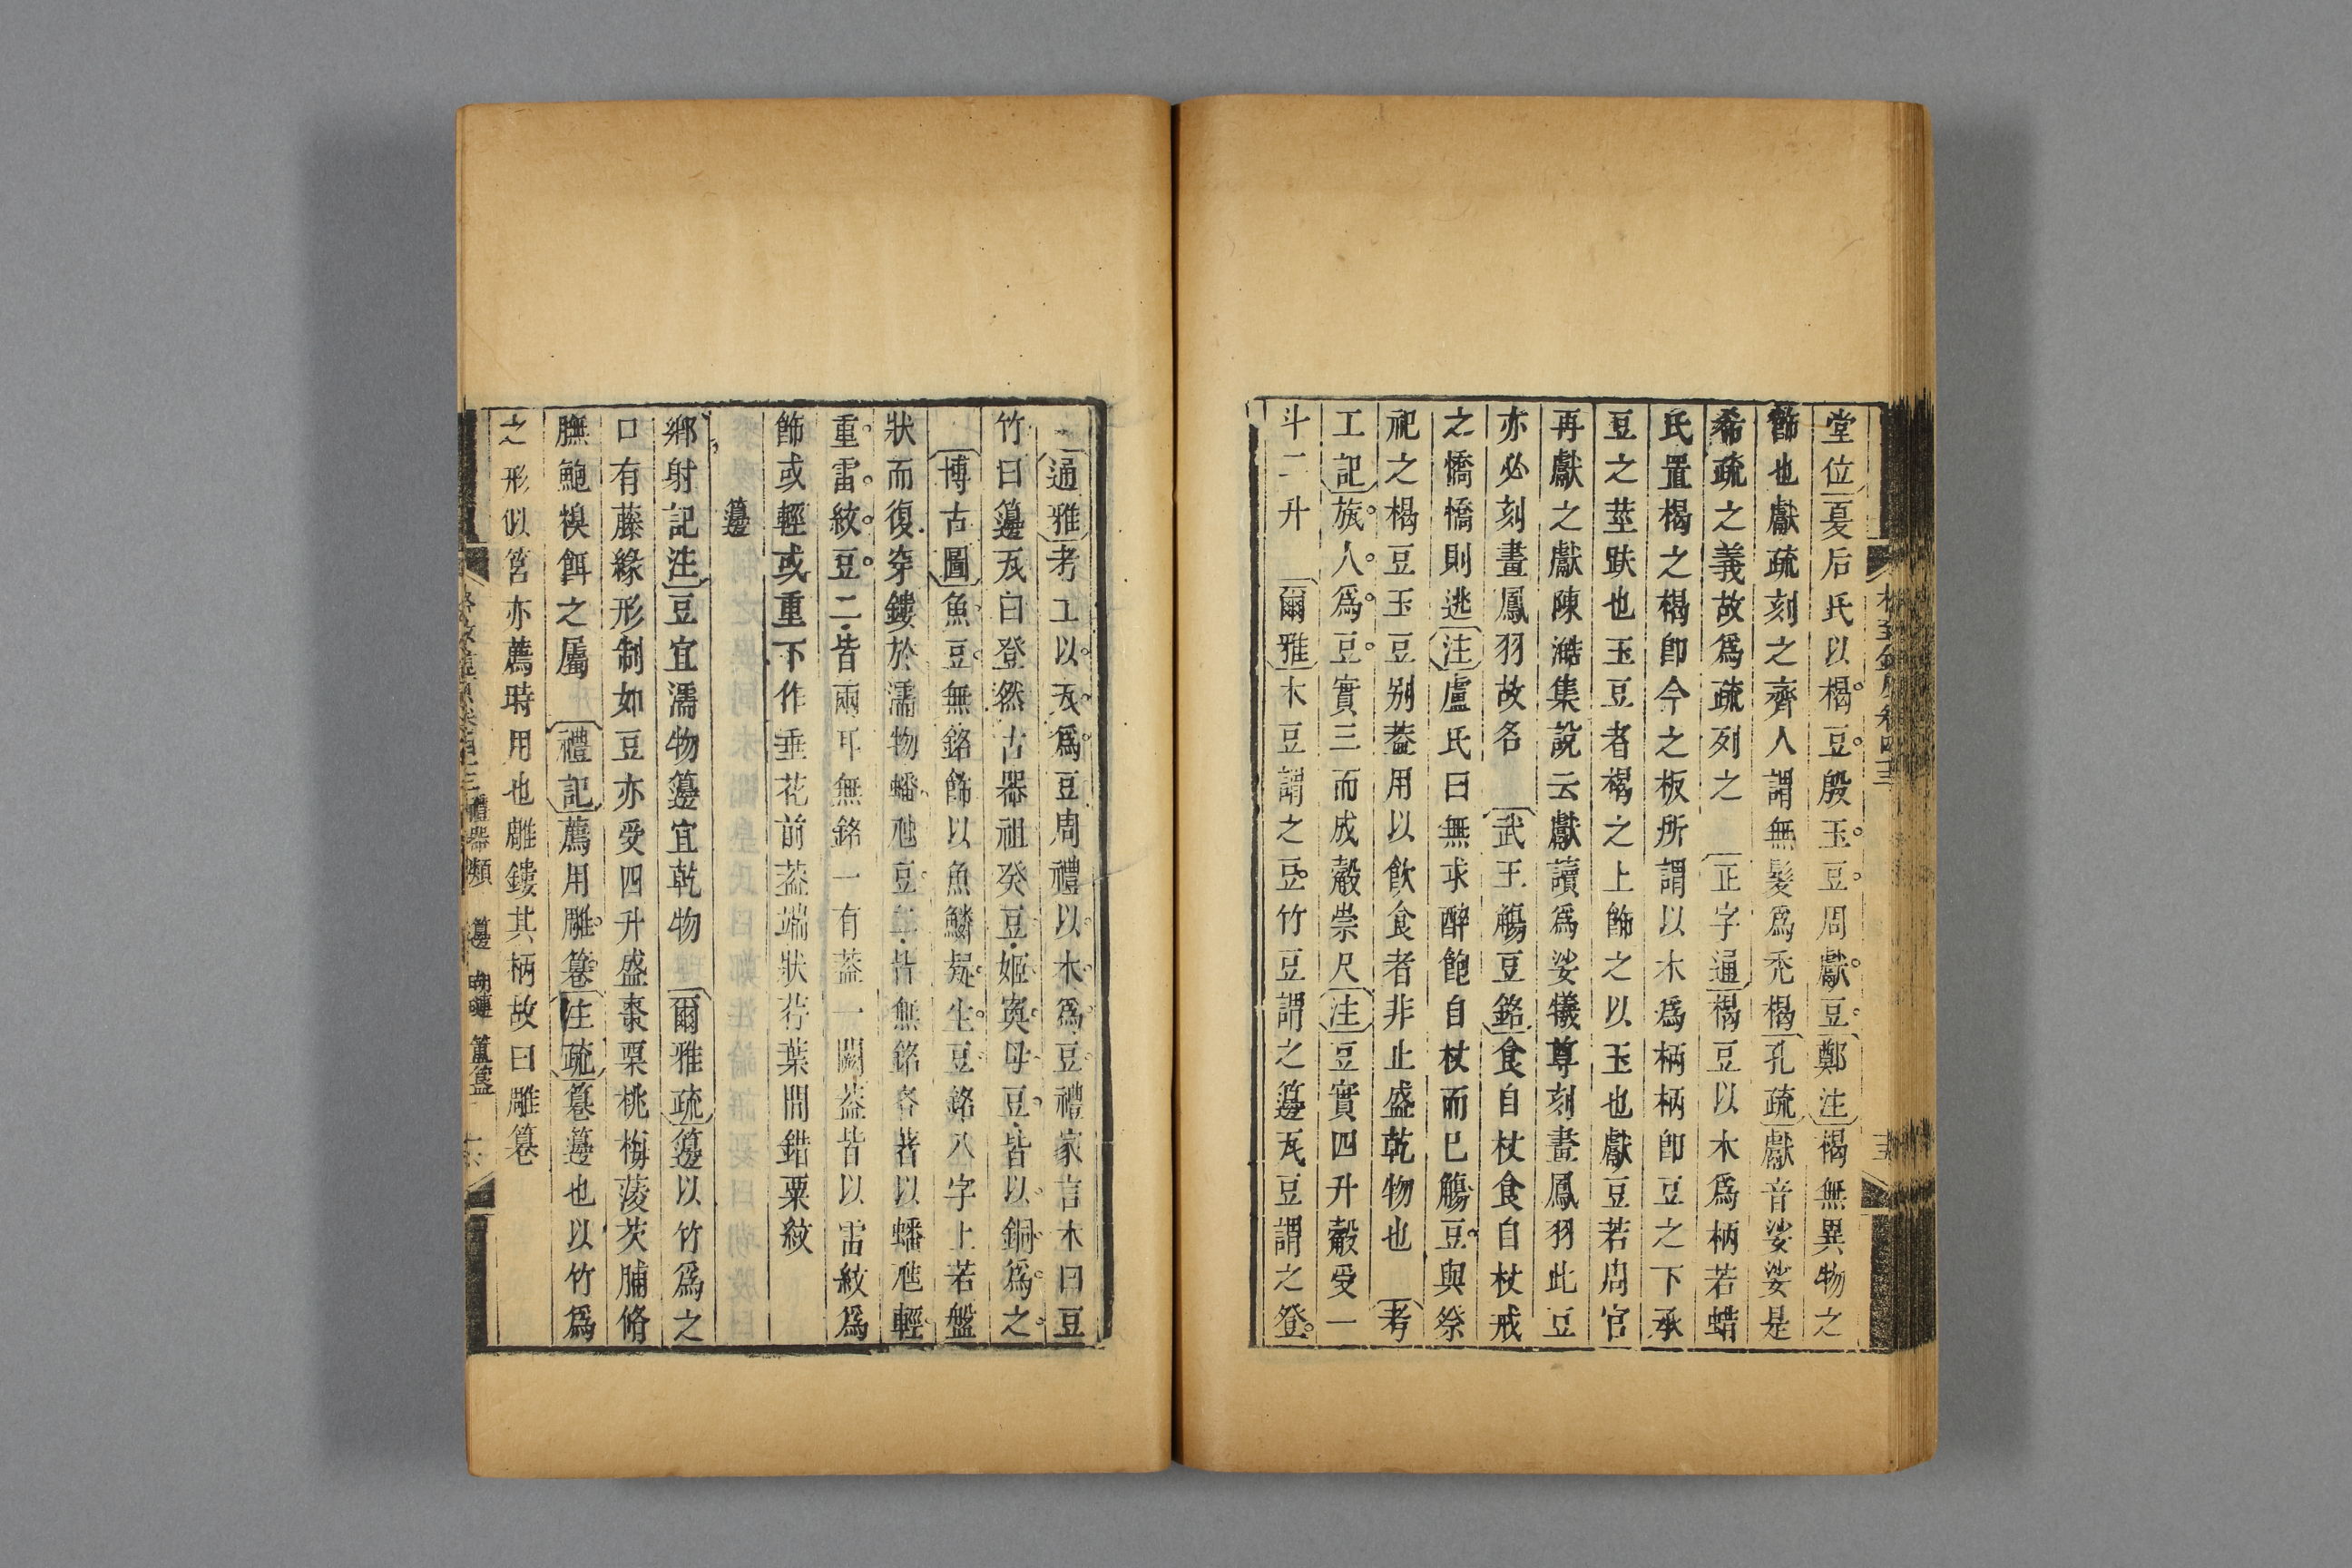 堂位夏后氏以楬豆殷玉豆周獻豆鄭注楬無異物之
飾也獻疏刻之齊人謂無髮爲禿楬孔疏獻音娑娑是
希疏之義故爲疏列之 正字通楬豆以木爲柄若蜡
氏置楬之楬卽今之板所謂以木爲柄柄卽豆之下承
豆之莖趺也玉豆者楬之上飾之以玉也獻豆若周官
再獻之獻陳澔集說云獻讀爲娑犧尊刻畫鳳羽此豆
亦必刻畫鳳羽故名 武王觴豆銘食自杖食自杖戒
之憍憍則逃注盧氏曰無求醉飽自杖而已觴豆與祭
祀之楬豆玉豆别葢用以飮食者非止盛乾物也 考
工記旅人爲豆實三而成觳崇尺注豆實四升觳受一
斗二升 爾雅木豆謂之豆竹豆謂之籩瓦豆謂之登
通雅考工以瓦爲豆周禮以木爲豆禮家言木曰豆
竹曰籩瓦曰登然古器祖癸豆姬寏母豆皆以銅爲之
博古圖魚豆無銘飾以魚鱗疑生豆銘八字上若盤
狀而復穿鏤於濡物蟠虺豆二皆無銘各著以蟠虺輕
重雷紋豆二皆兩耳無銘一有葢一闕葢皆以雷紋爲
飾或輕或重下作垂花前葢端狀荇葉間錯粟紋
籩
鄉射記注豆宜濡物籩宜乾物 爾雅疏籩以竹爲之
口有藤緣形制如豆亦受四升盛棗栗桃梅蔆芡脯脩
膴鮑糗餌之屬 禮記薦用雕篹注疏篹籩也以竹爲
之形似筥亦薦時用也雕鏤其柄故曰雕篹
禮器類 籩 瑚璉 簠簋